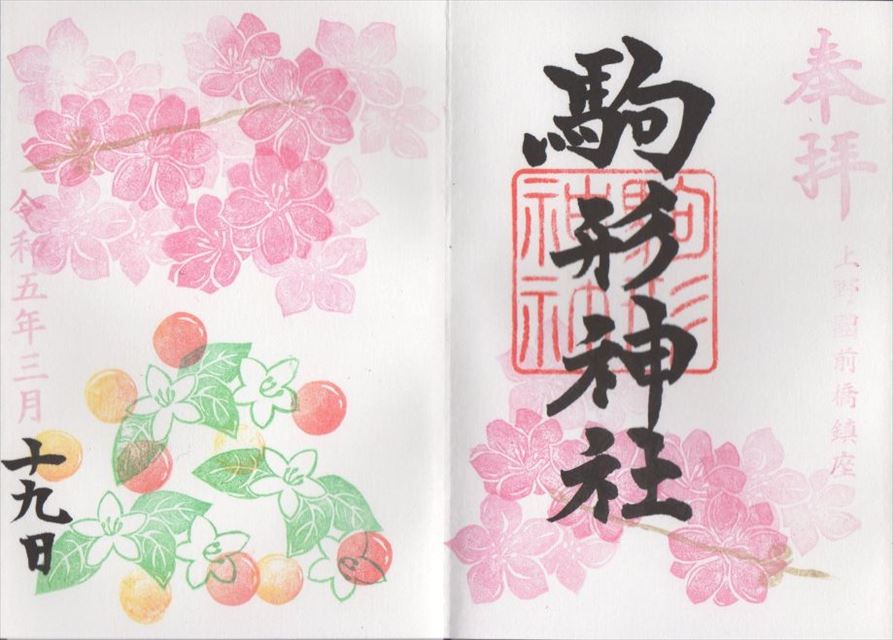 奉拝
上野國前橋鎮座
駒形神社
駒形
神社
令和五年三月
十九日